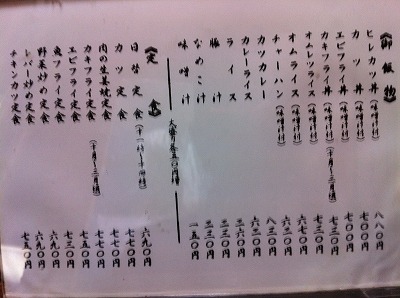 《御飯物》
ヒレカツ丼(味噌汁付) 八八〇円
カツ丼(味噌汁付) 七〇〇円
エビフライ丼(味噌汁付) 七〇〇円
カキフライ丼(味噌汁付)(十月〜三月頃) 七三〇円
オムレツライス(味噌汁付)
オムライス(味噌汁付)
チャーハン(味噌汁付) 六三〇円
カツカレー 八三〇円
カレーライス 六三〇円
ライス
豚汁
なめこ汁
味噌汁 一五〇円
大盛りは五〇円増
《定食》
日替定食 六九〇円
カツ定食 七七〇円
肉の生姜焼定食 七七〇円
カキフライ定食(十月〜三月頃) 七七〇円
エビフライ定食 七五〇円
魚フライ定食 七三〇円
野菜炒め定食 六九〇円
レバー炒め定食 六九〇円
チキンカツ定食 七五〇円